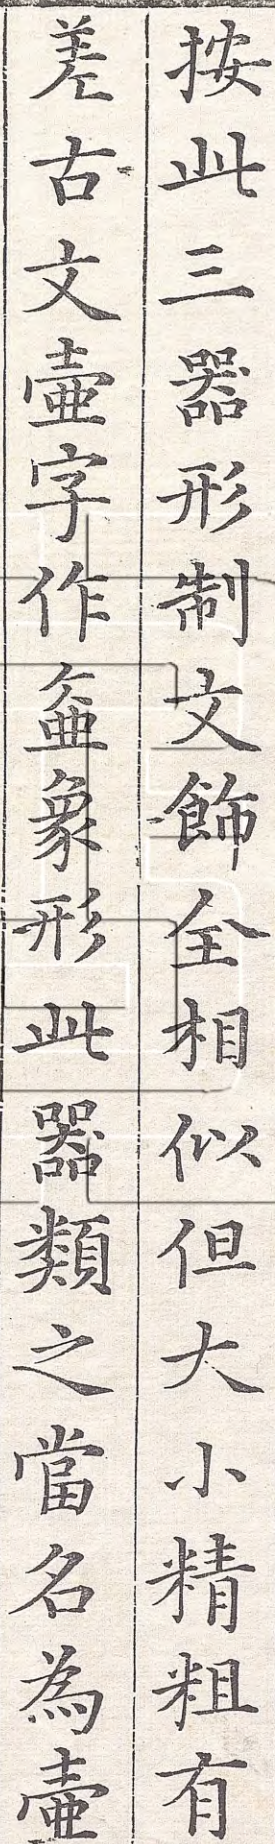 按此三器形制文飾全相似但大小精粗有
差古文壷字作𡔲象形此器類之當名為壷